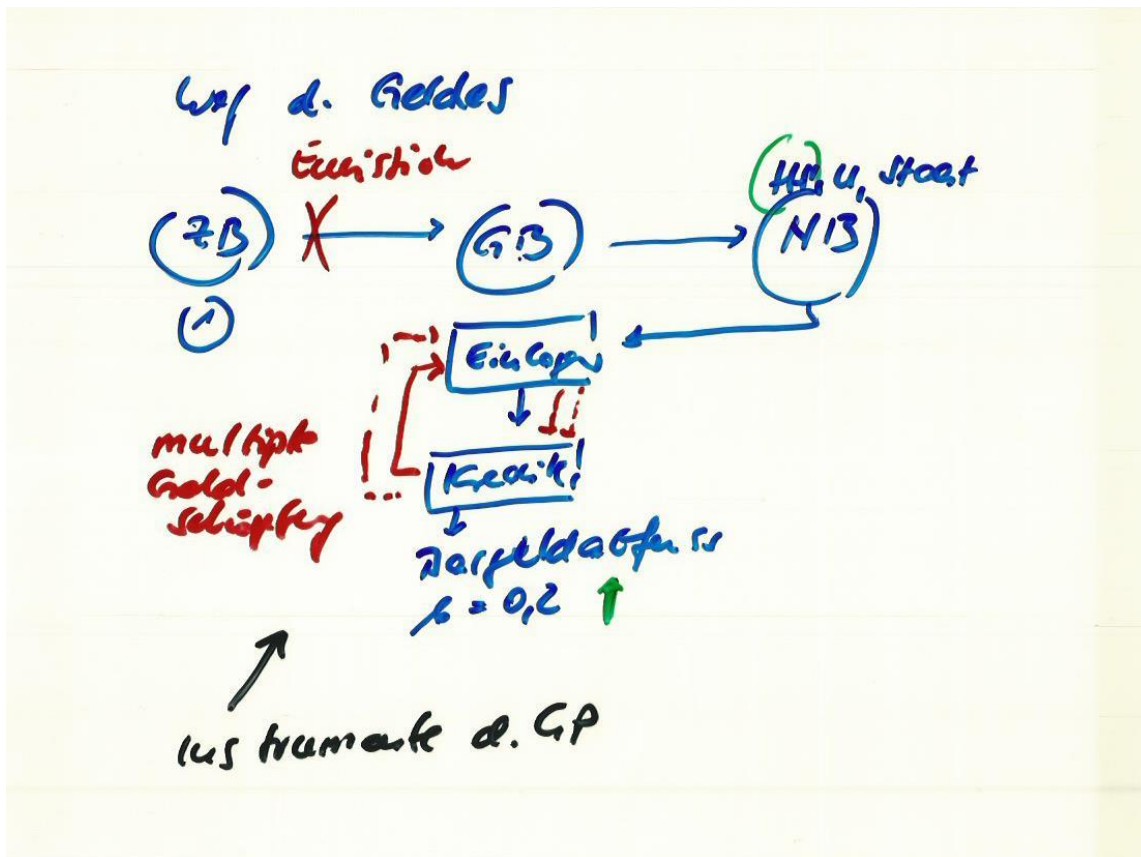 Weg d. Geldes
Emission
HH, U, Staat
ZB
GB
NB
1
Einlagen
multiple
Geld-
schöpfung
Kredite
Bargeldabfluss
b = 0,2
Instrumente d. GP